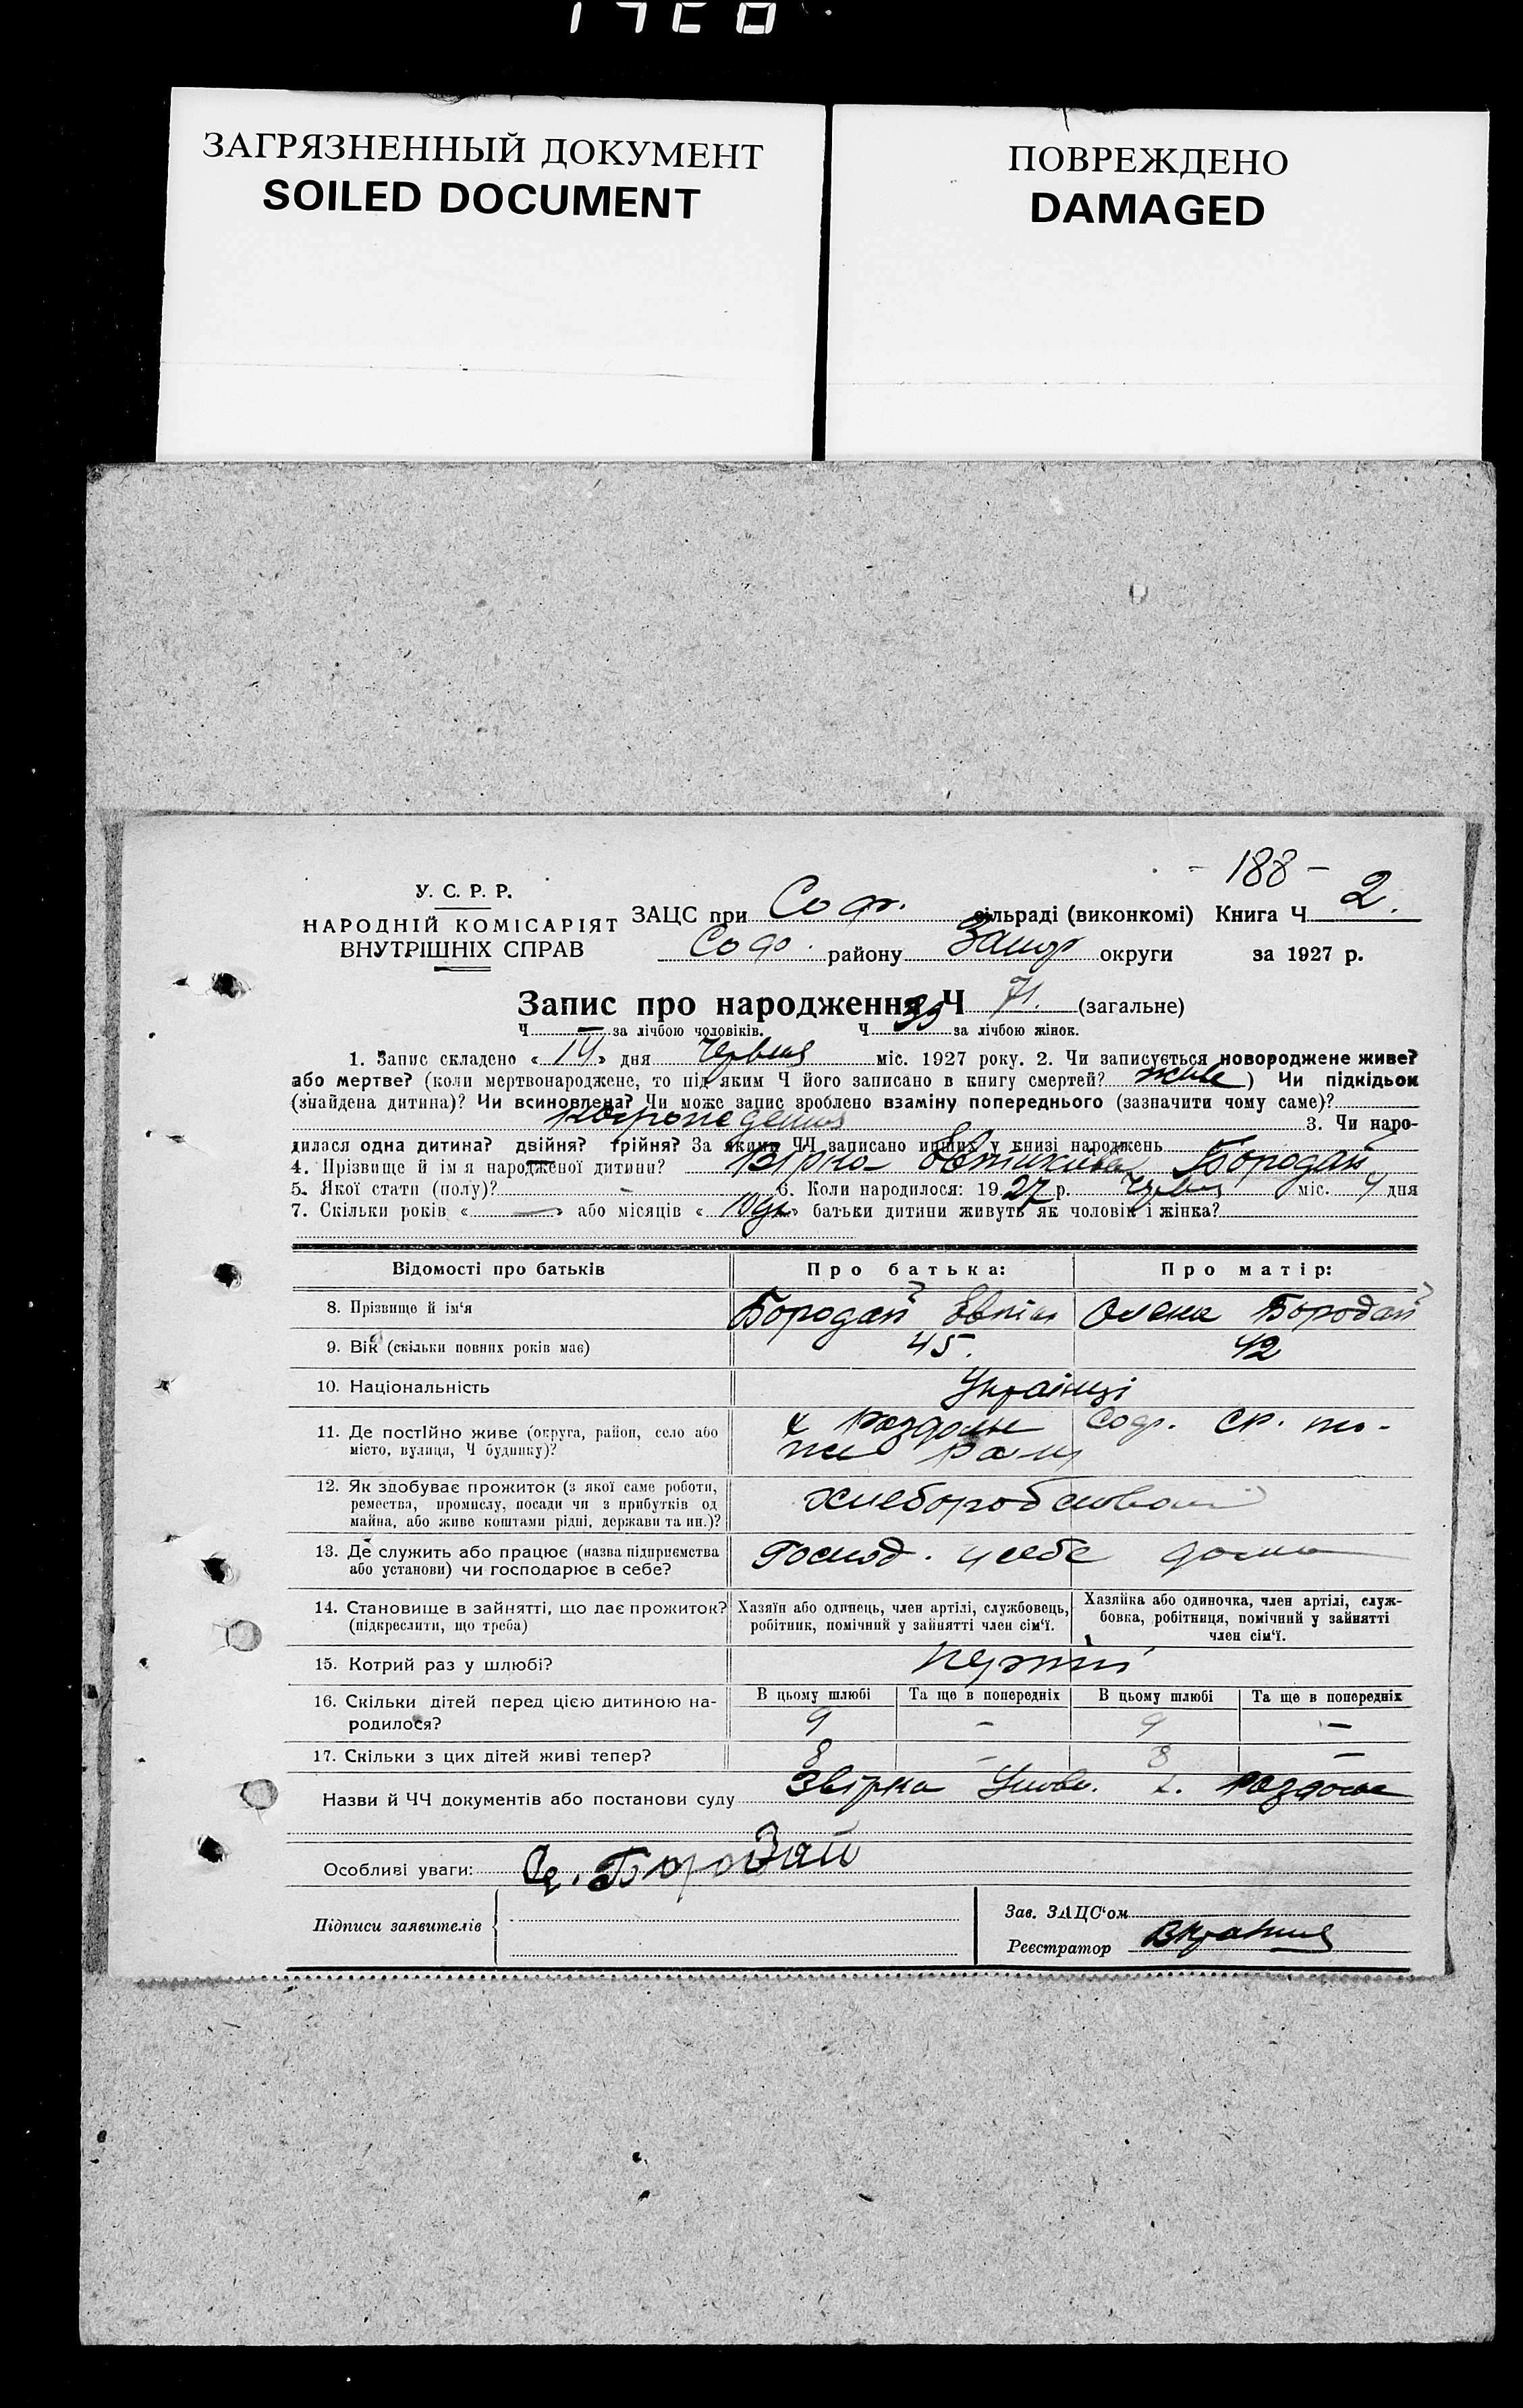 ЗАГРЯЗНЕННЫЙ ДОКУМЕНТ
SOILED DOCUMENT
ПОВРЕЖДЕНО
DAMAGED
- 188 -
У. С. Р. Р.
НАРОДНІЙ КОМІСАРІЯТ
ВНУТРІШНІХ СПРАВ
ЗАЦС при Соф. сільраді (виконкомі) Книга Ч 2.
Соф. району округи за 1927 р.
Запис про народження Ч 71. (загальне)
Ч — за лічбою чоловіків. Ч 39 за лічбою жінок.
1. Запис складено « 14 » дня Червня міс. 1927 року. 2. Чи записується новороджене живе?
або мертве? (коли мертвонароджене, то під яким Ч його записано в книгу смертей? живе ) Чи підкідьок
(знайдена дитина)? Чи всиновлена? Чи може запис зроблено взаміну попереднього (зазначити чому саме)?
3. Чи наро-
дилася одна дитина? двійня? трійня? За якими ЧЧ записано инших у книзі народжень
4. Прізвище й ім я народженої дитини? Вірка Бородай
5. Якої стати (полу)? — 6. Коли народилося: 1927 р. міс. 4 дня
7. Скільки років « — » або місяців « » батьки дитини живуть як чоловік і жінка?
Відомості про батьків
Про батька:
Про матір:
8. Прізвище й ім'я
Бородай
Олена Бородай
9. Вік (скільки повних років має)
45.
42
10. Національність
Українці
11. Де постійно живе (округа, район, село або
місто, вулиця, Ч будинку)?
х Роздолье Соф. ср. то-
же
12. Як здобуває прожиток (з якої саме роботи,
ремества, промислу, посади чи з прибутків од
майна, або живе коштами рідні, держави та ин.)?
13. Де служить або працює (назва підприємства
або установи) чи господарює в себе?
Господ. у себе дома
14. Становище в зайнятті, що дає прожиток?
(підкреслити, що треба)
Хазяїн або одинець, член артілі, службовець,
робітник, помічний у зайнятті член сім'ї.
Хазяйка або одиночка, член артілі, служ-
бовка, робітниця, помічний у зайнятті
член сім'ї.
15. Котрий раз у шлюбі?
перший
16. Скільки дітей перед цією дитиною на-
родилося?
В цьому шлюбі
Та ще в попередніх
В цьому шлюбі
Та ще в попередніх
9 — 9 —
17. Скільки з цих дітей живі тепер?
8 — 8 —
Назви й ЧЧ документів або постанови суду Звірка Уповн. х. Роздолье
Особливі уваги: Бородай
Підписи заявителів
Зав. ЗАЦС'ом
Реєстратор